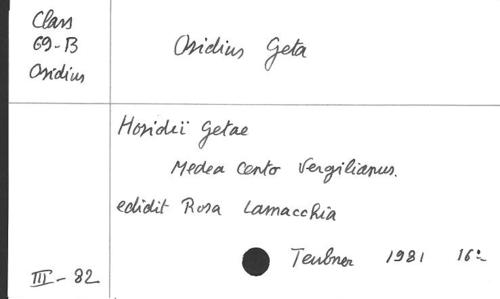 Class
69-B
Osidius
Osidius Geta
Hosidii Getae
Medea Cento Vergilianus.
edidit Rosa Lamacchia
Teubner 1981 16º
III - 82